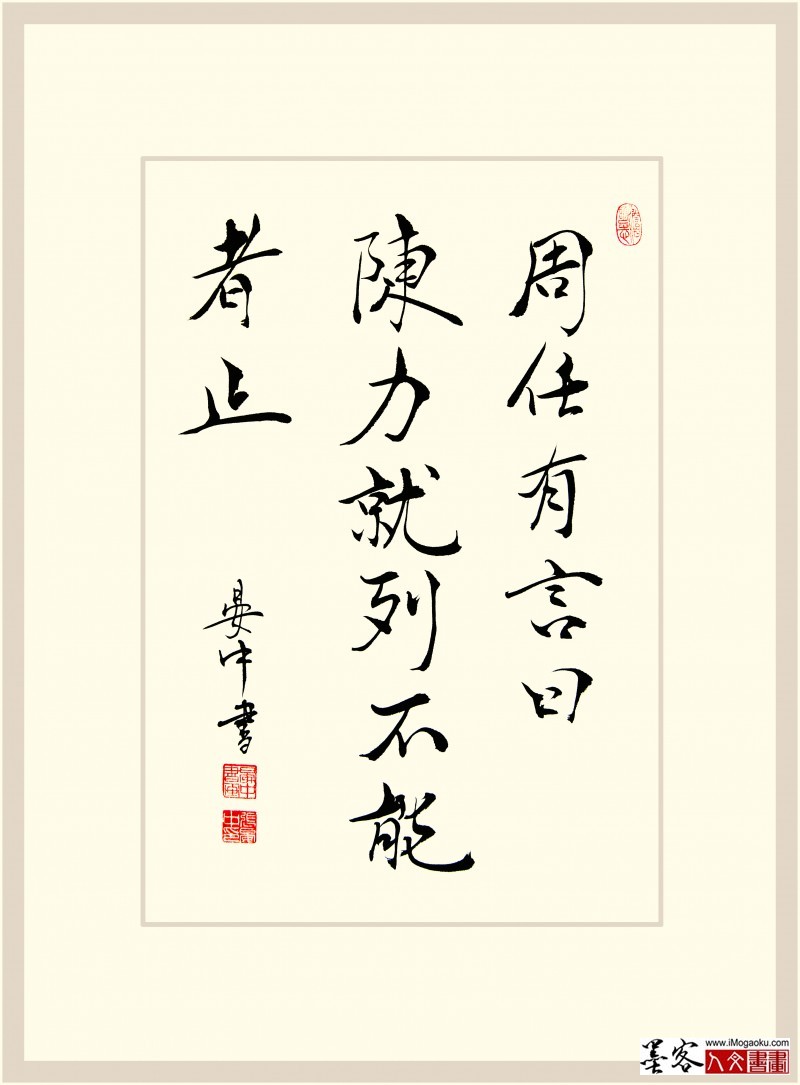 周任有言曰
陳力就列不能
者止
晏中書
墨客
www.iMogaoku.com
人文書畫